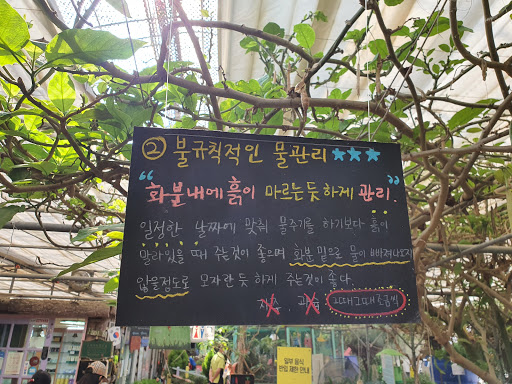 ② 불규칙적인 물관리 ★★★
"화분내에 흙이 마르는듯 하게 관리."
일정한 날짜에 맞춰 물주기를 하기보다 흙이
말라있을 때 주는것이 좋으며 화분 밑으로 물이 빠져나오지
않을정도로 모자란 듯 하게 주는것이 좋다.
그때그때 조금씩
일부 음식
반입 제한 안내